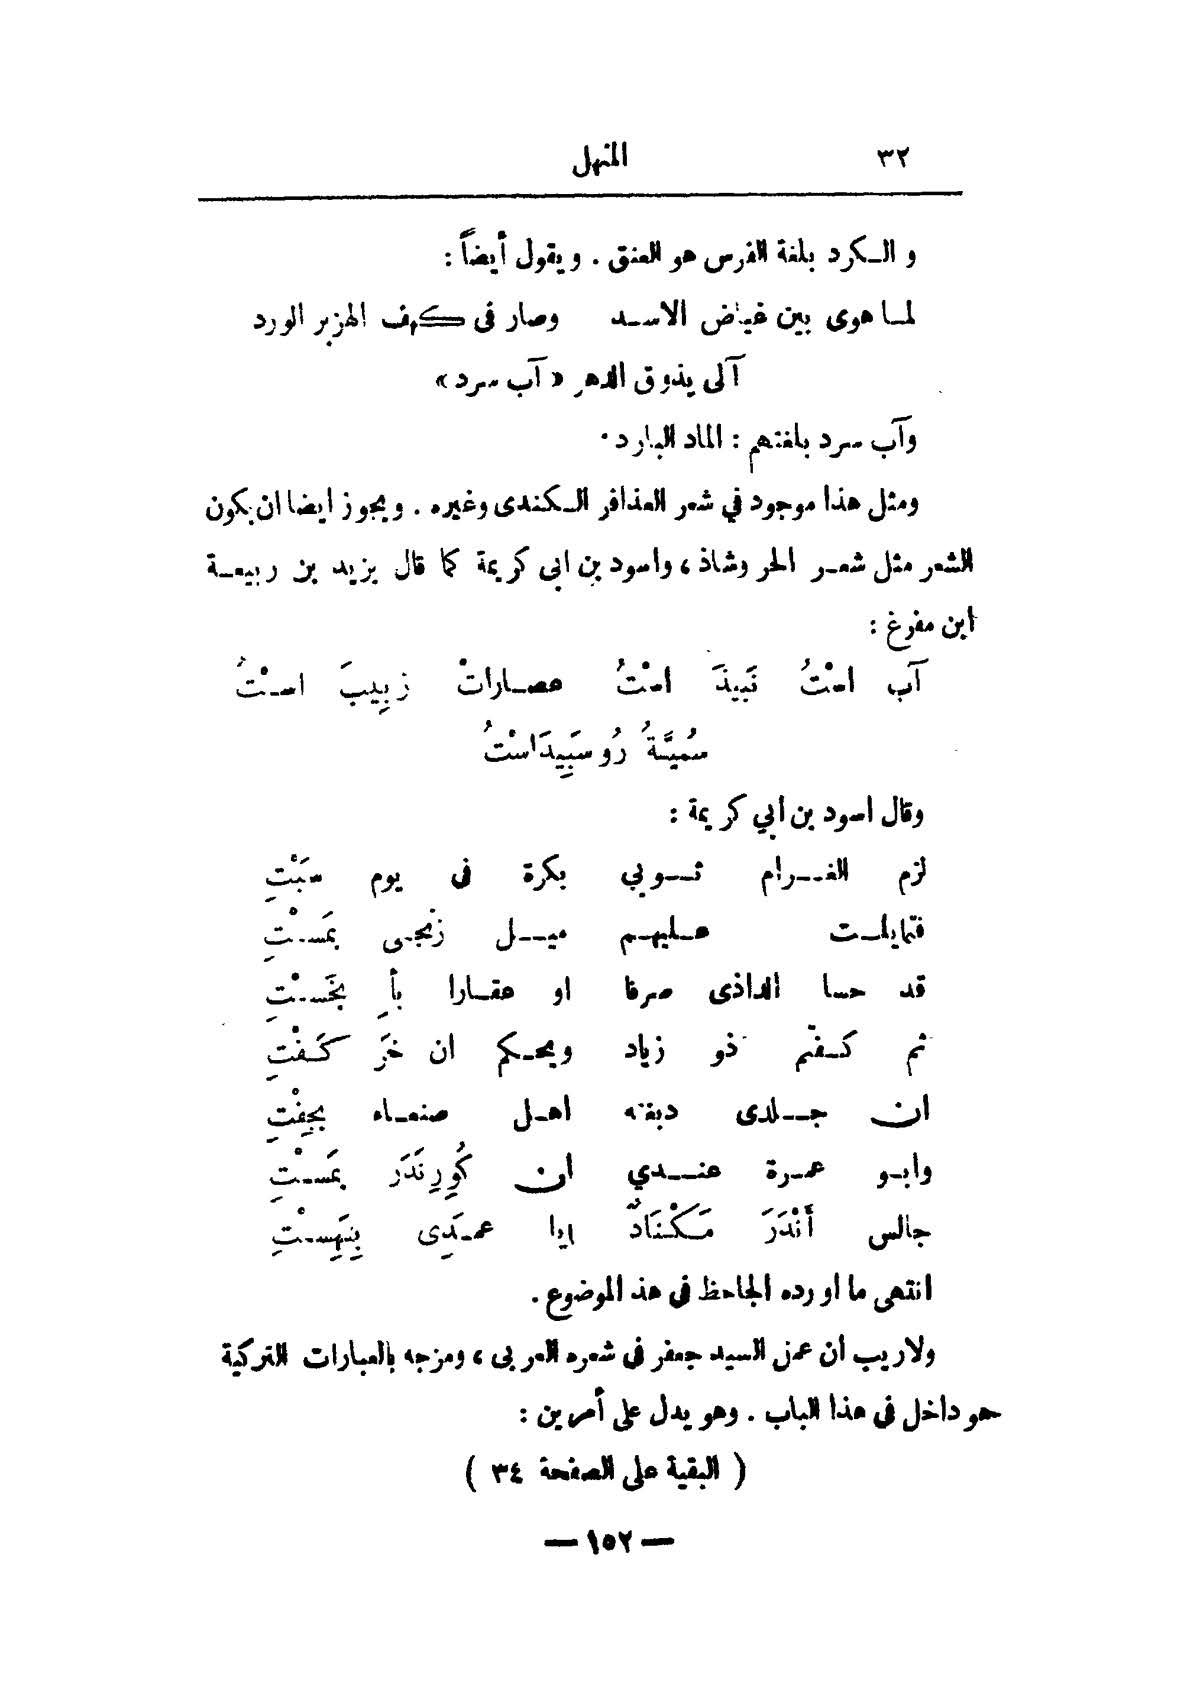 ٣٢ المنهل
و الكرد بلغة الفرس هو العنق . و يقول أيضاً :
لما هوى بين غياض الاسد وصار فى كهف الهزبر الورد
آلى يذوق الدهر « آب سرد »
وآب سرد بلغتهم : الماء البارد .
ومثل هذا موجود في شعر العذافر الكندى وغيره . ويجوز ايضا ان يكون
الشعر مثل شعر الحر وشاذ ، واسود بن ابى كريمة كما قال يزيد بن ربيعة
ابن مفرغ :
آب اسْتُ نَبيذَ اسْتُ عصاراتْ زبِيبَ اسْتُ
سُميَّةُ رُو سَبِيدَاسْتُ
وقال اسود بن أبي كريمة :
لزم الغرام ثوبي بكرة فى يوم سَبْتِ
فتمايلت عليهم ميل زنْجى بمَسْتِ
قد حسا الداذى صرفا او عقارا بأِ يخَسْتِ
ثم كفْتم ذو زياد ويحكم ان خَر كَفْتِ
ان جلدى دبغته اهل صنعاء بجِفْتِ
وابو عمرة عندي ان كُورِنَدَر بمَسْتِ
جالس أَنْدَرَ مَكْنَادٌ ايا عمَدِى بِنَهِسْتِ
انتهى ما اورده الجاحظ فى هذ الموضوع .
ولاريب ان عمل السيد جعفر فى شعره العربى ، ومزجه بالعبارات التركية
هو داخل فى هذا الباب . وهو يدل على أمرين :
( البقية على الصفحة ٣٤ )
— ١٥٢ —